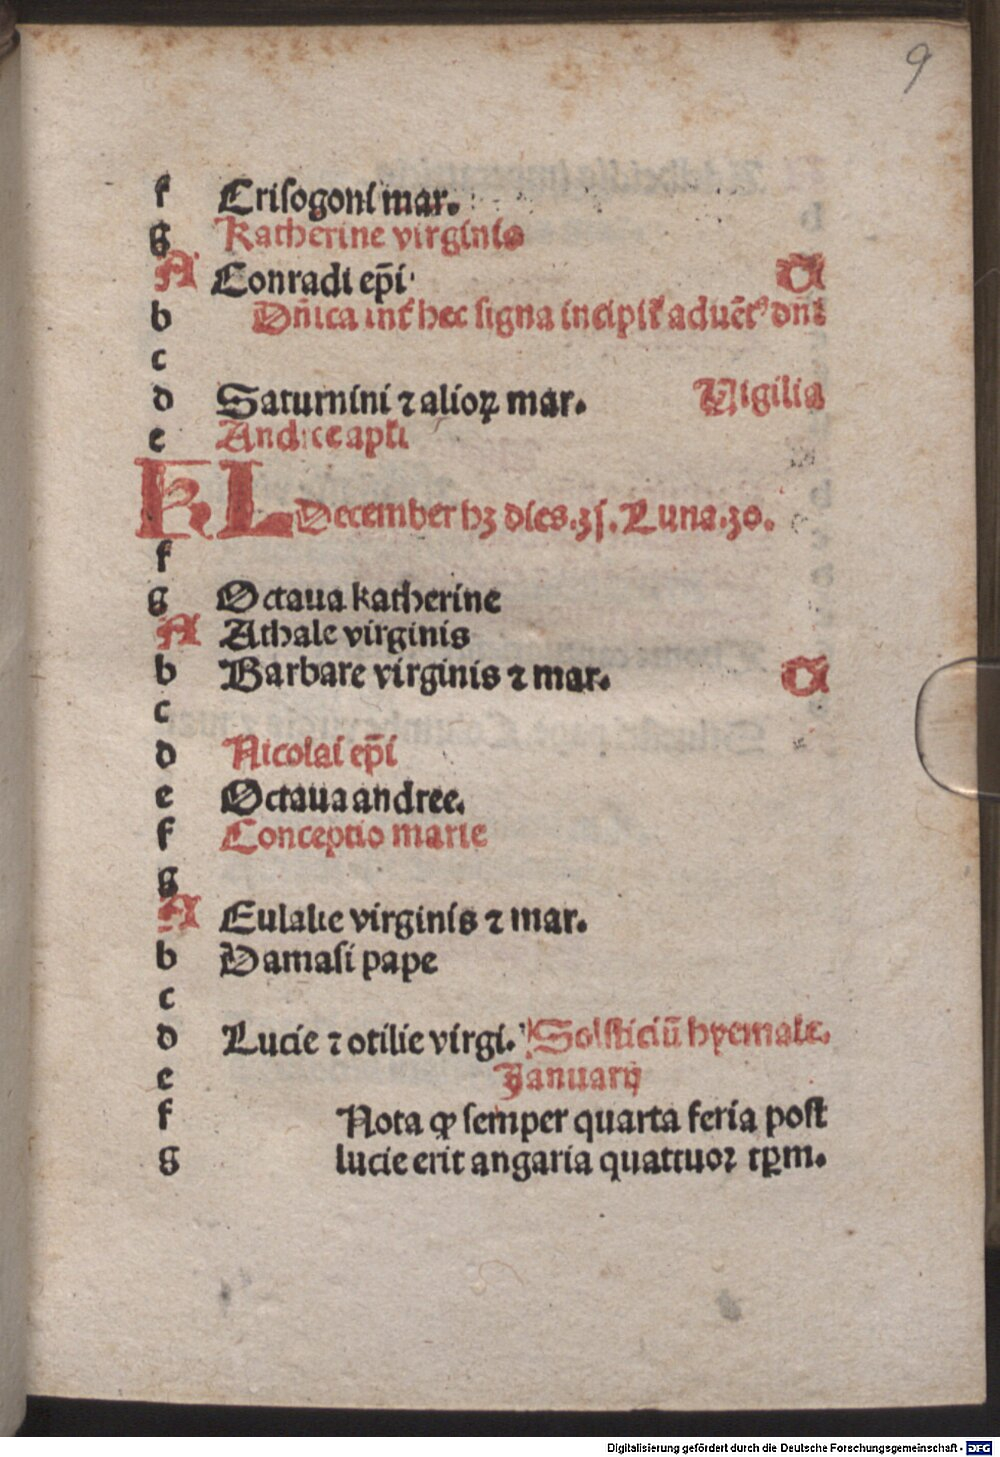 9
f Criſogoni mar.
g Katherine virginis
A Conradi ep̄i
b Dn̄ica int̄ hec ſigna incipit̄ aduēt⁹ dn̄i
c
d Saturnini ⁊ alioꝝ mar. Vigilia
e Andree apl̄i
KL December hꝫ dies.3ſ. Luna.30.
f
g Octaua katherine
A Athale virginis
b Barbare virginis ⁊ mar.
c
d Nicolai ep̄i
e Octaua andree.
f Conceptio marie
g
A Eulalie virginis ⁊ mar.
b Damaſi pape
c
d Lucie ⁊ otilie virgi. Solſticiū hyemale.
e Januarij
f Nota ꝙ ſemper quarta feria poſt
g lucie erit angaria quattuoꝛ tꝑm.
Digitalisierung gefördert durch die Deutsche Forschungsgemeinschaft - DFG